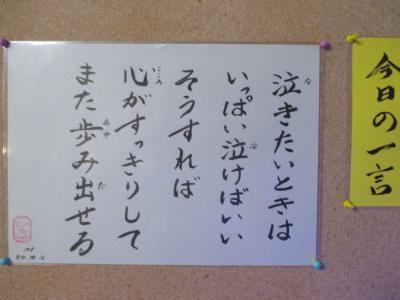 今日の一言
泣きたいときは
いっぱい泣けばいい
そうすれば
心がすっきりして
また歩み出せる